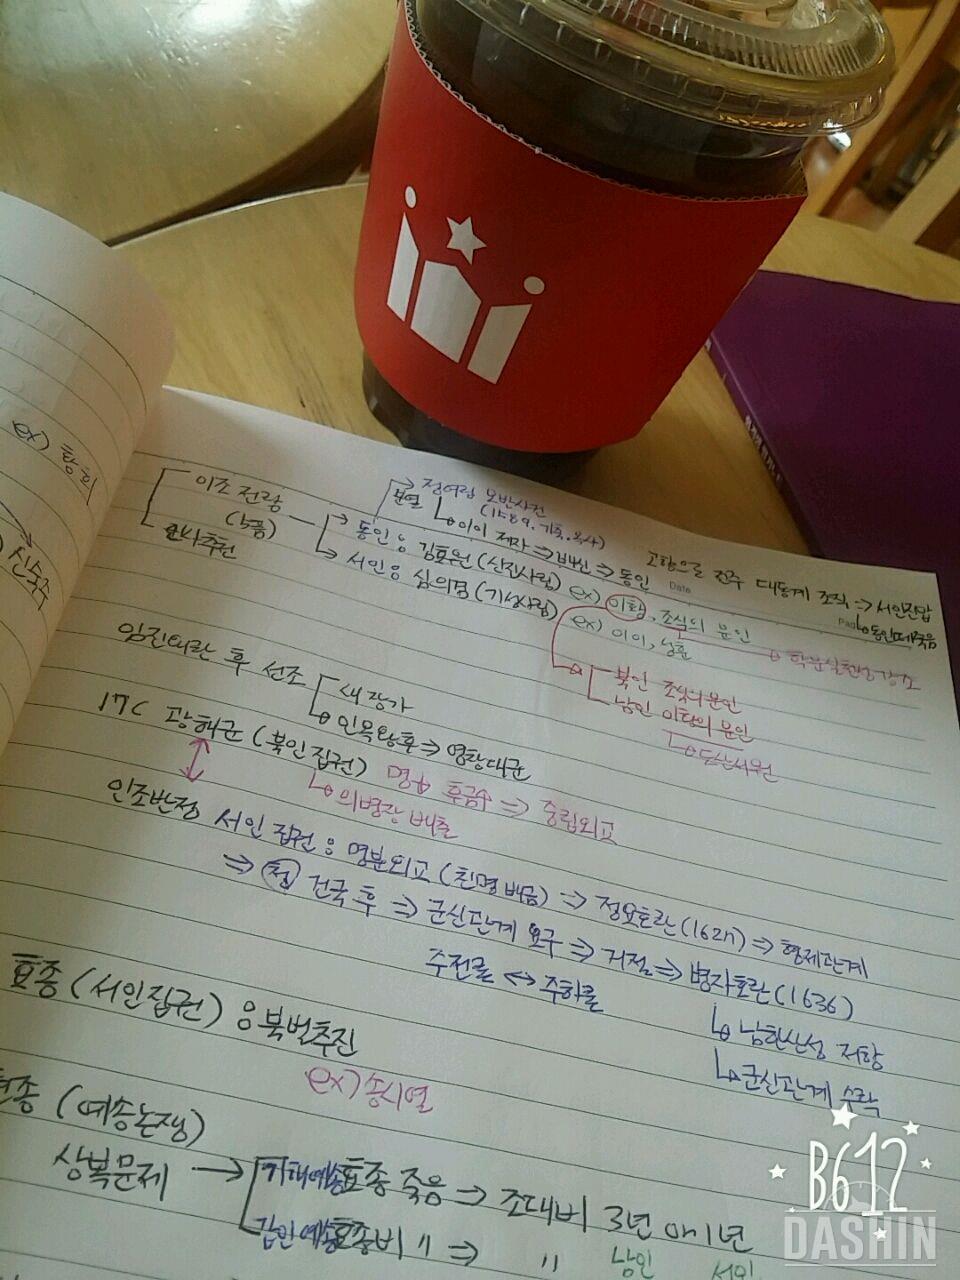 ex) 황희
신숙주
이조 전랑
(5품)
분열 정여립 모반사건
(1589. 기축.옥사)
이이 제자 ⇒ 배신 ⇒ 동인
고향으로 전주 대동계 조직 ⇒ 서인진압
Date
동인 : 김효원 (신진사림) ex) 이황, 조식의 문인
동인떼죽음
서인 : 심의겸 (기성사림) ex) 이이, 성혼
학문실천성강조
북인 조식의문인
남인 이황의 문인
도산서원
임진왜란 후 선조
새장가
인목왕후 ⇒ 영창대군
17C 광해군 (북인집권) 명나 후금 ⇒ 중립외교
의병장 배출
인조반정 서인 집권 : 명분외교 (친명배금) ⇒ 정묘호란 (1627) ⇒ 형제관계
⇒ 청 건국 후 ⇒ 군신관계 요구 ⇒ 거절 ⇒ 병자호란 (1636)
주전론 ↔ 주화론
남한산성 저항
군신관계 수락
효종 (서인집권) : 북벌추진
ex) 송시열
현종 (예송논쟁)
상복문제 → 기해예송 효종 죽음 ⇒ 조대비 3년 or 1년
갑인예송 효종비 〃 ⇒ 〃
남인 서인
B612
DASHIN